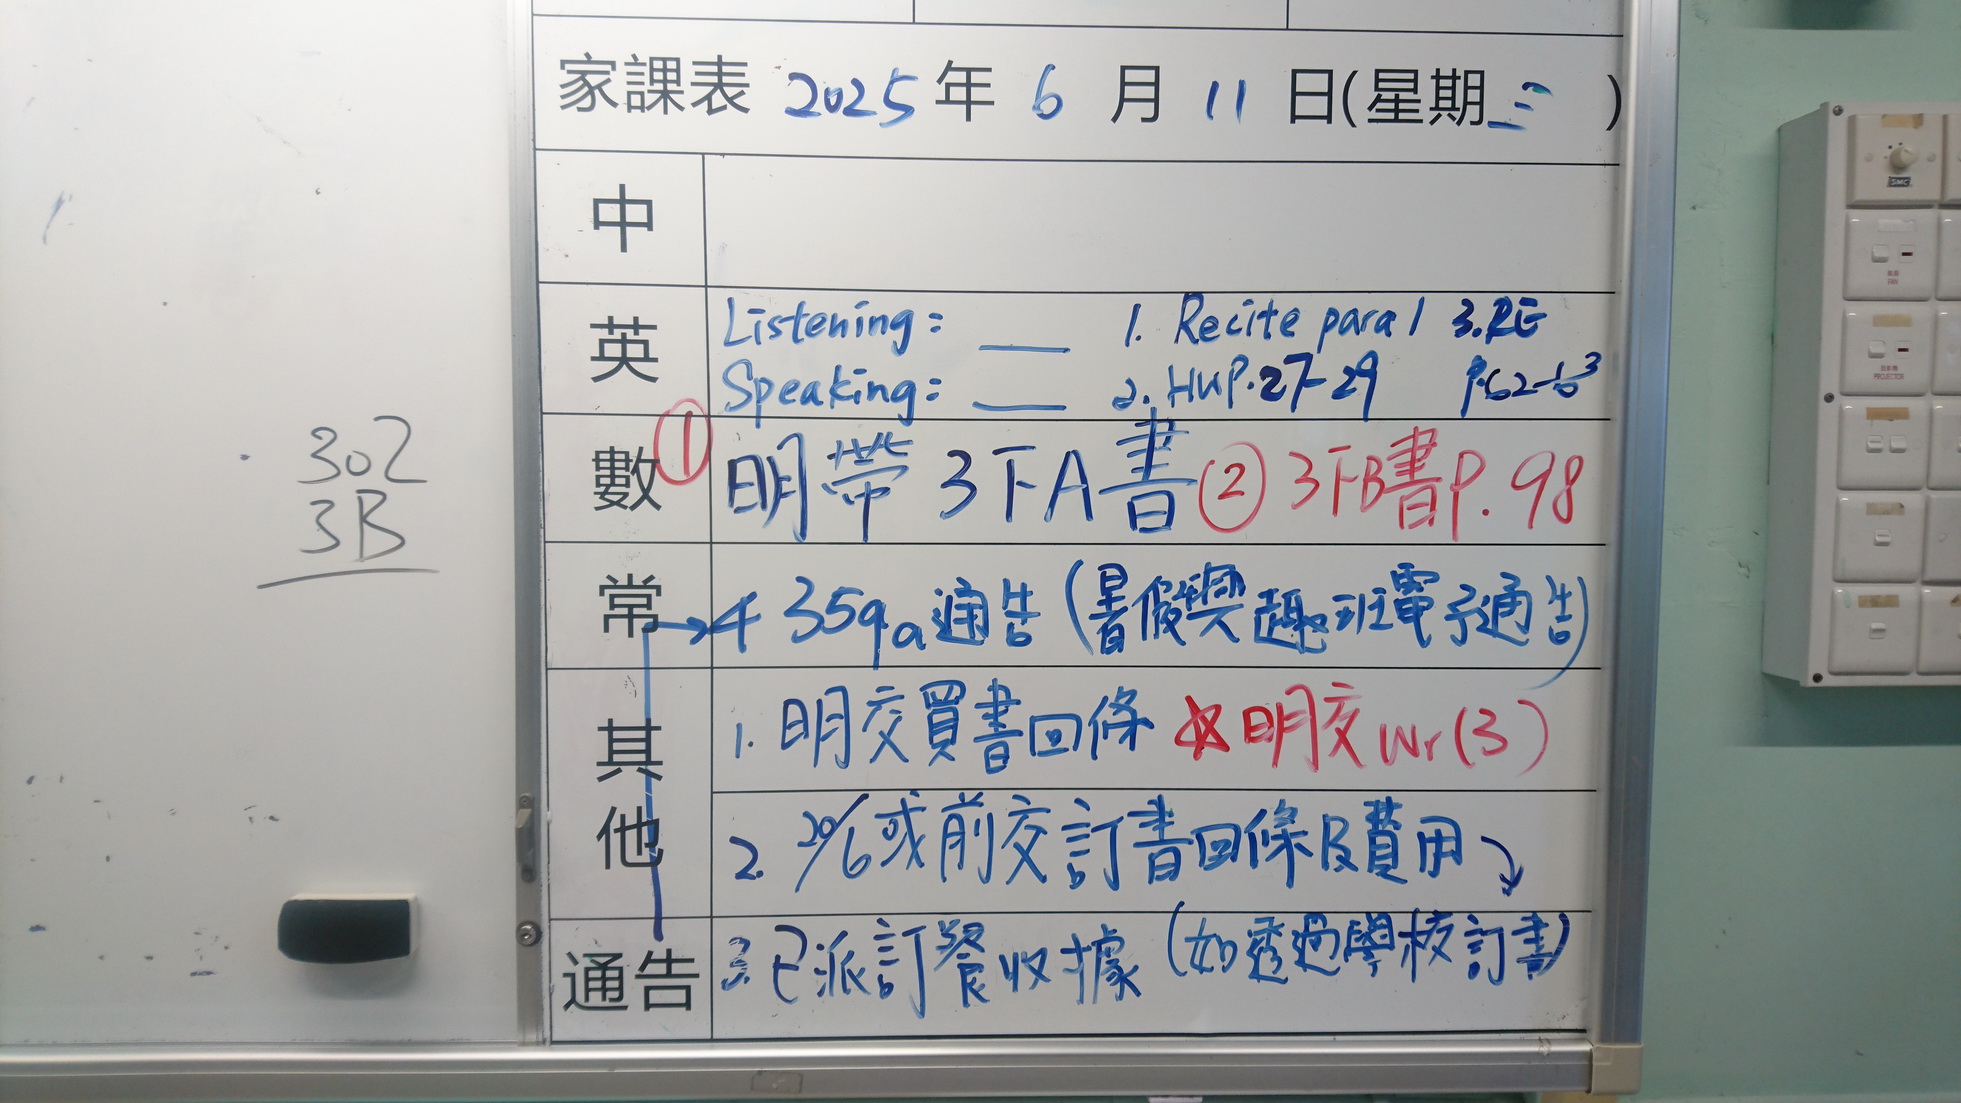 家課表 2025 年 6 月 11 日(星期三)
中
英
Listening: __ 1. Recite para 1 3. RE
Speaking: __ 2. HWP.27-29 P.62-63
數 ① 明帶 3下A書 ② 3下B書P.98
常
4 359a通告(暑假興趣班電子通告)
其他
1. 明交買書回條 ☆明交 Wr(3)
2. 20/6或前交訂書回條及費用
(如透過學校訂書)
通告
3. 已派訂餐收據
302
3B
SMC
FAN
PROJECTOR